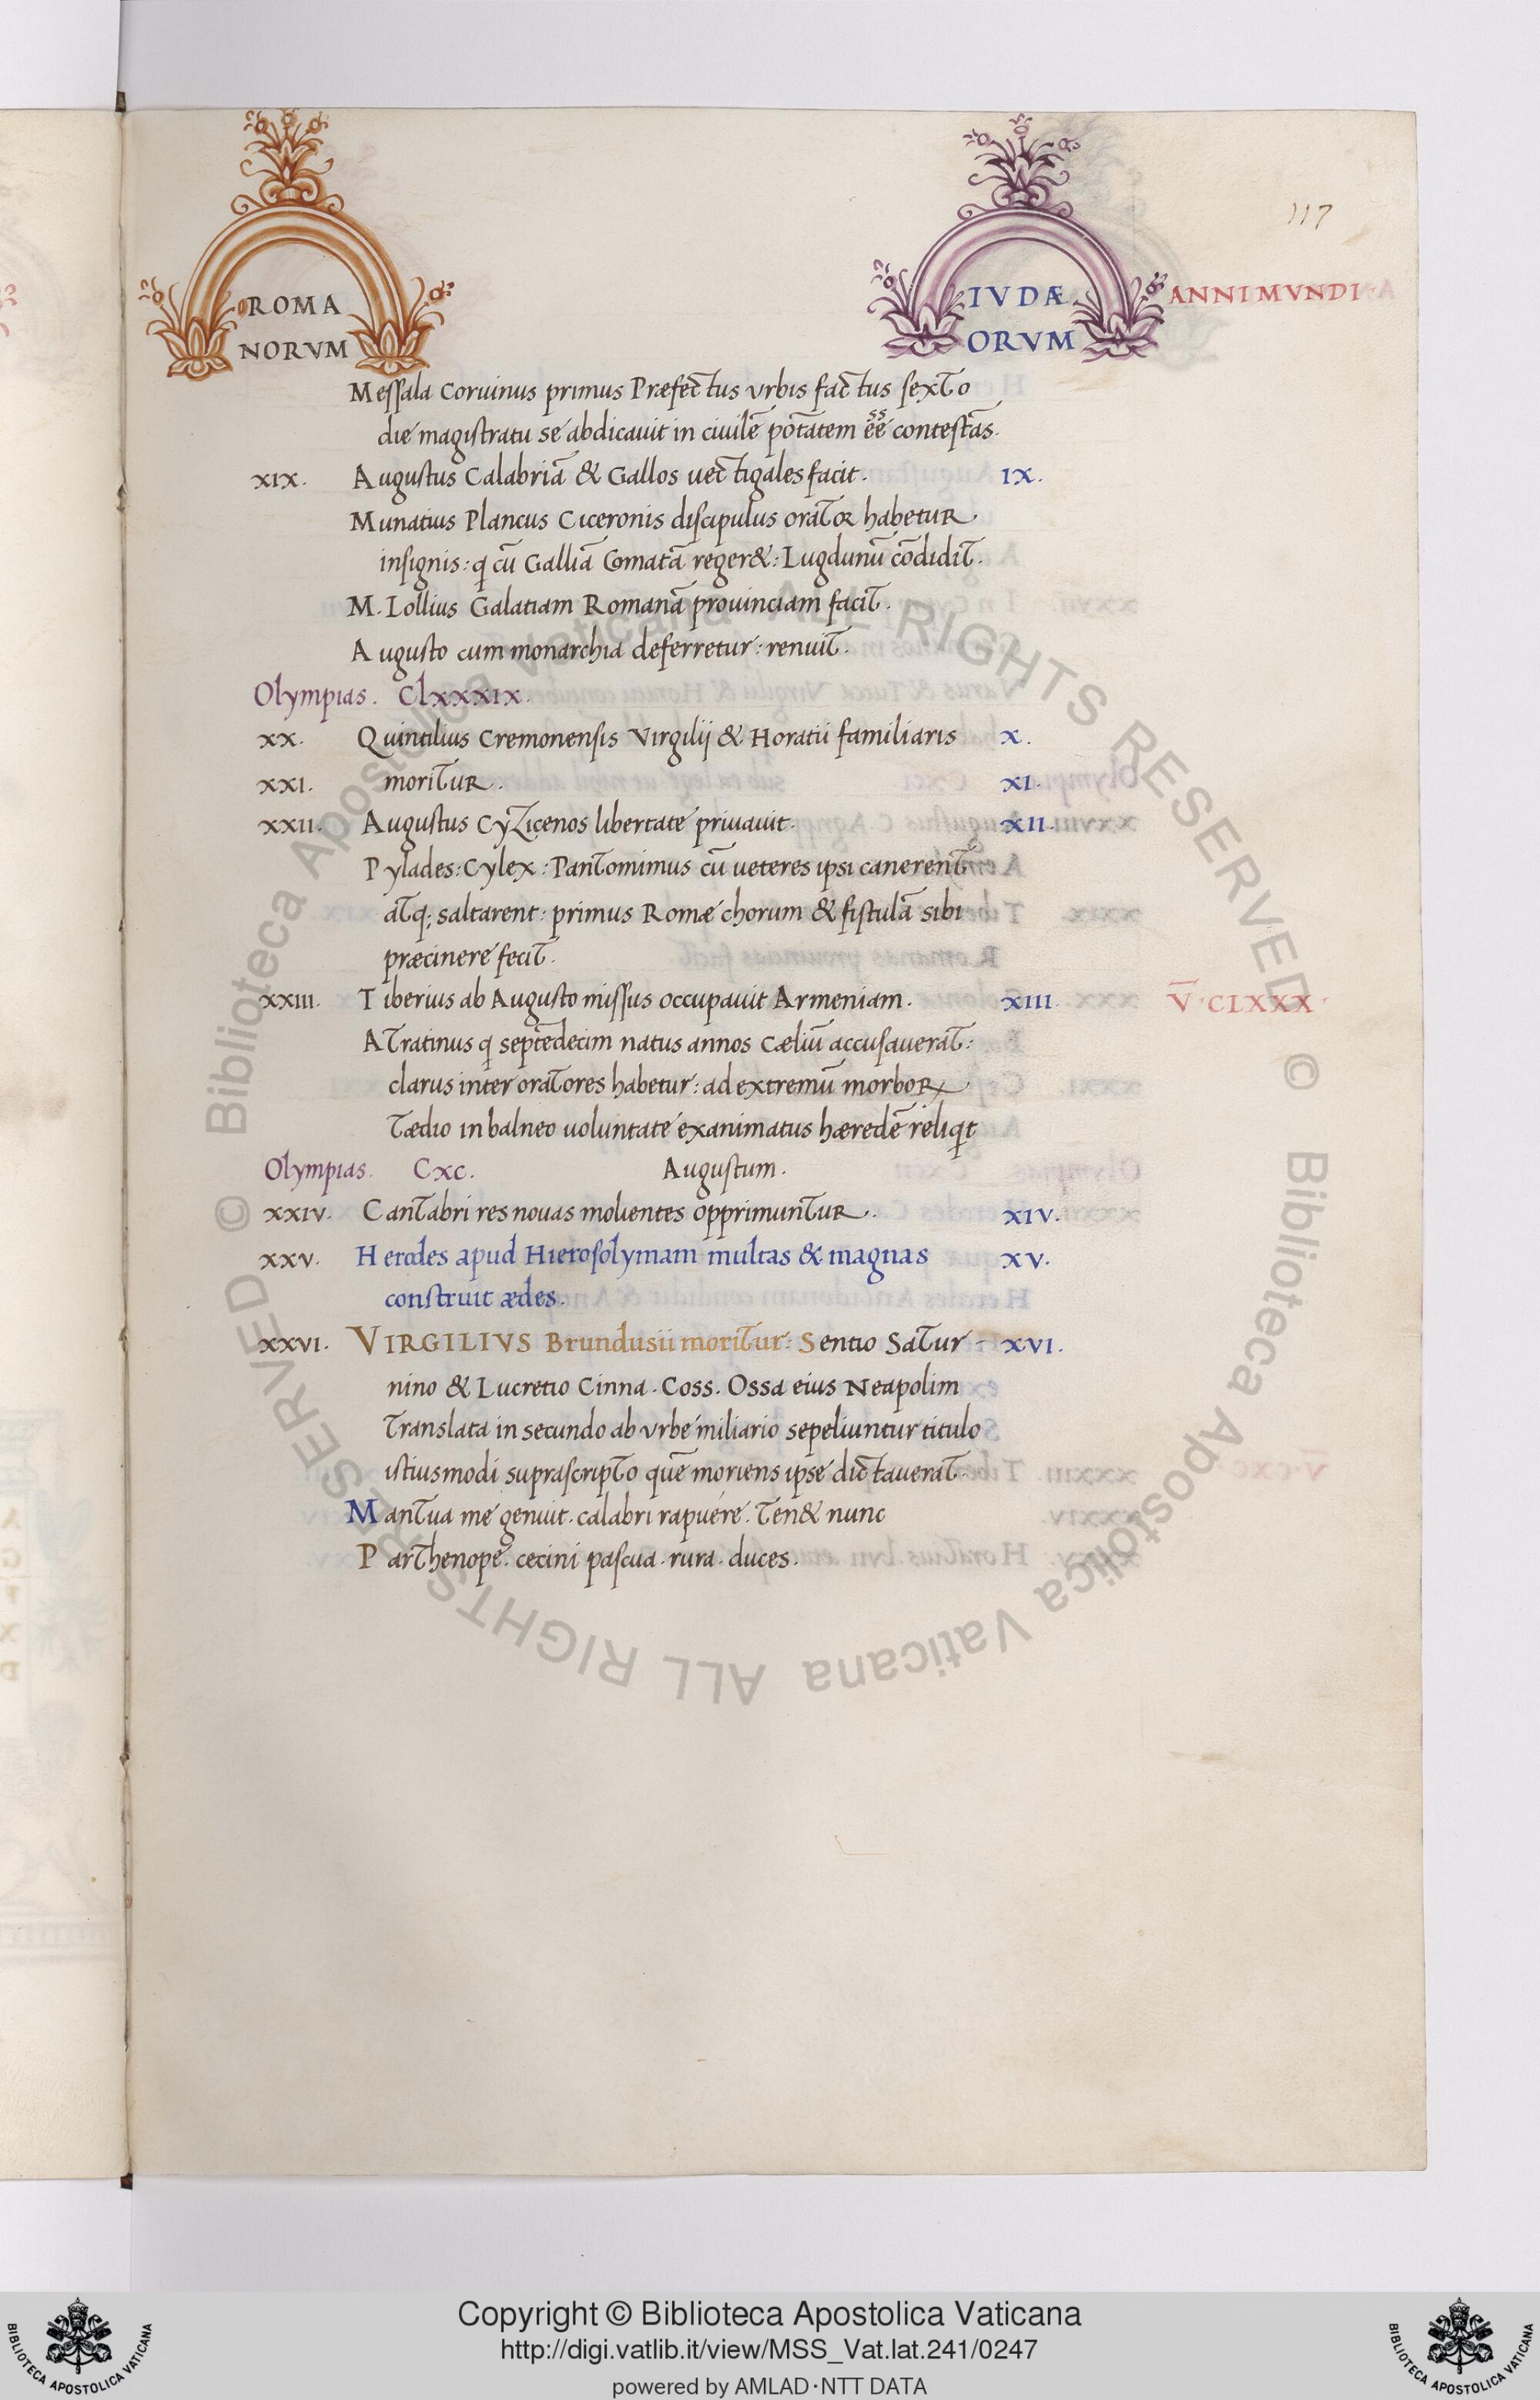 117
ROMA
NORVM
IVDÆ
ORVM
ANNI MVNDI
Messala Coruinus primus Præfectus vrbis factus sexto
die magistratu se abdicauit in ciuilē po͞tatem eē͞ contestās.
XIX. Augustus Calabriā & Gallos uectigales facit. IX.
Munatius Plancus Ciceronis discipulus orator habetur
insignis: q cū Galliā Comatā reger&: Lugdunū cōdidit.
M. Lollius Galatiam Romanā prouinciam facit.
Augusto cum monarchia deferretur: renuit.
Olympias. Clxxxix.
XX. Quintilius Cremonensis Virgilij & Horatii familiaris X.
XXI. moritur. XI.
XXII. Augustus Cyzicenos libertate priuauit. XII.
Pylades: Cylex: Pantomimus cū ueteres ipsi canerent
atq; saltarent: primus Romæ chorum & fistulā sibi
præcinere fecit.
XXIII. Tiberius ab Augusto missus occupauit Armeniam. XIII. V̅ CLXXX
Atratinus q septēdecim natus annos Cæliū accusauerat:
clarus inter oratores habetur: ad extremū morboꝝ
tædio in balneo uoluntate exanimatus hæredē reliqt
Olympias. Cxc. Augustum.
XXIV. Cantabri res nouas molientes opprimuntur. XIV.
XXV. Herodes apud Hierosolymam multas & magnas XV.
construit ædes.
XXVI. VIRGILIVS Brundusii moritur: Sentio Satur- XVI.
nino & Lucretio Cinna. Coss. Ossa eius Neapolim
translata in secundo ab vrbe miliario sepeliuntur titulo
istiusmodi suprascripto quē moriens ipse dictauerat.
Mantua me genuit. calabri rapuere. ten& nunc
Parthenope. cecini pascua. rura. duces.
© Biblioteca Apostolica Vaticana ALL RIGHTS RESERVED © Biblioteca Apostolica Vaticana ALL RIGHTS RESERVED
Copyright © Biblioteca Apostolica Vaticana
http://digi.vatlib.it/view/MSS_Vat.lat.241/0247
powered by AMLAD·NTT DATA
BIBLIOTECA APOSTOLICA VATICANA
BIBLIOTECA APOSTOLICA VATICANA